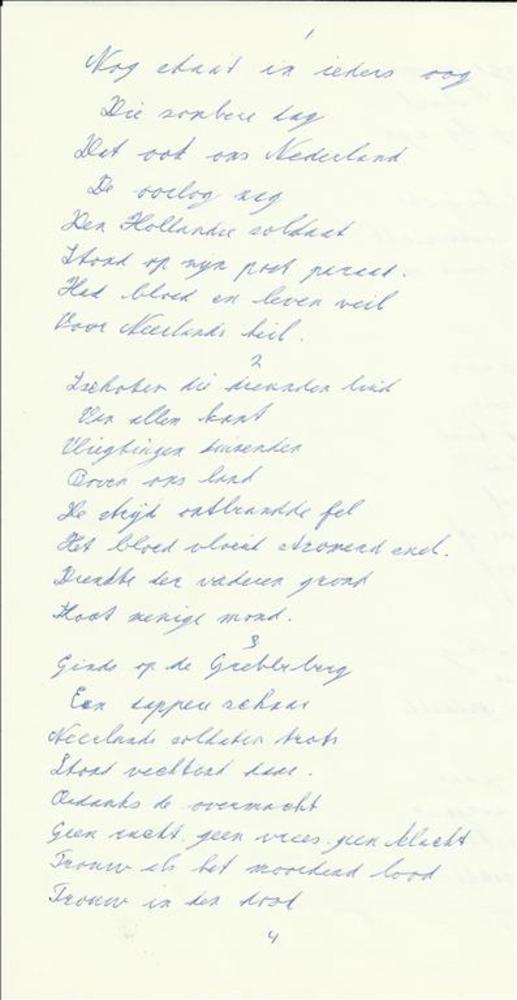 1
Nog staat in ieders oog
Die sombere dag
Dat ook ons Nederland
De oorlog zag
Den Hollandse soldaat
Stond op zijn post paraat.
Had bloed en leven veil
Voor Neerlands heil.
2
Schoten die dreunden luid
Van allen kant
Vliegtuigen duizenden
Boven ons land
De strijd ontbrandde fel
Het bloed vloeide stromend snel.
Drenkte der vaderen grond
Hoot menige mond.
3
Ginds op de Grebbeberg
Een dappere schaar
Neerlands soldaten trots
Stond vechtend daar.
Ondanks de overmacht
Geen zucht. geen vrees. geen klacht
Trouw als het moordend lood
Trouw in den dood
4